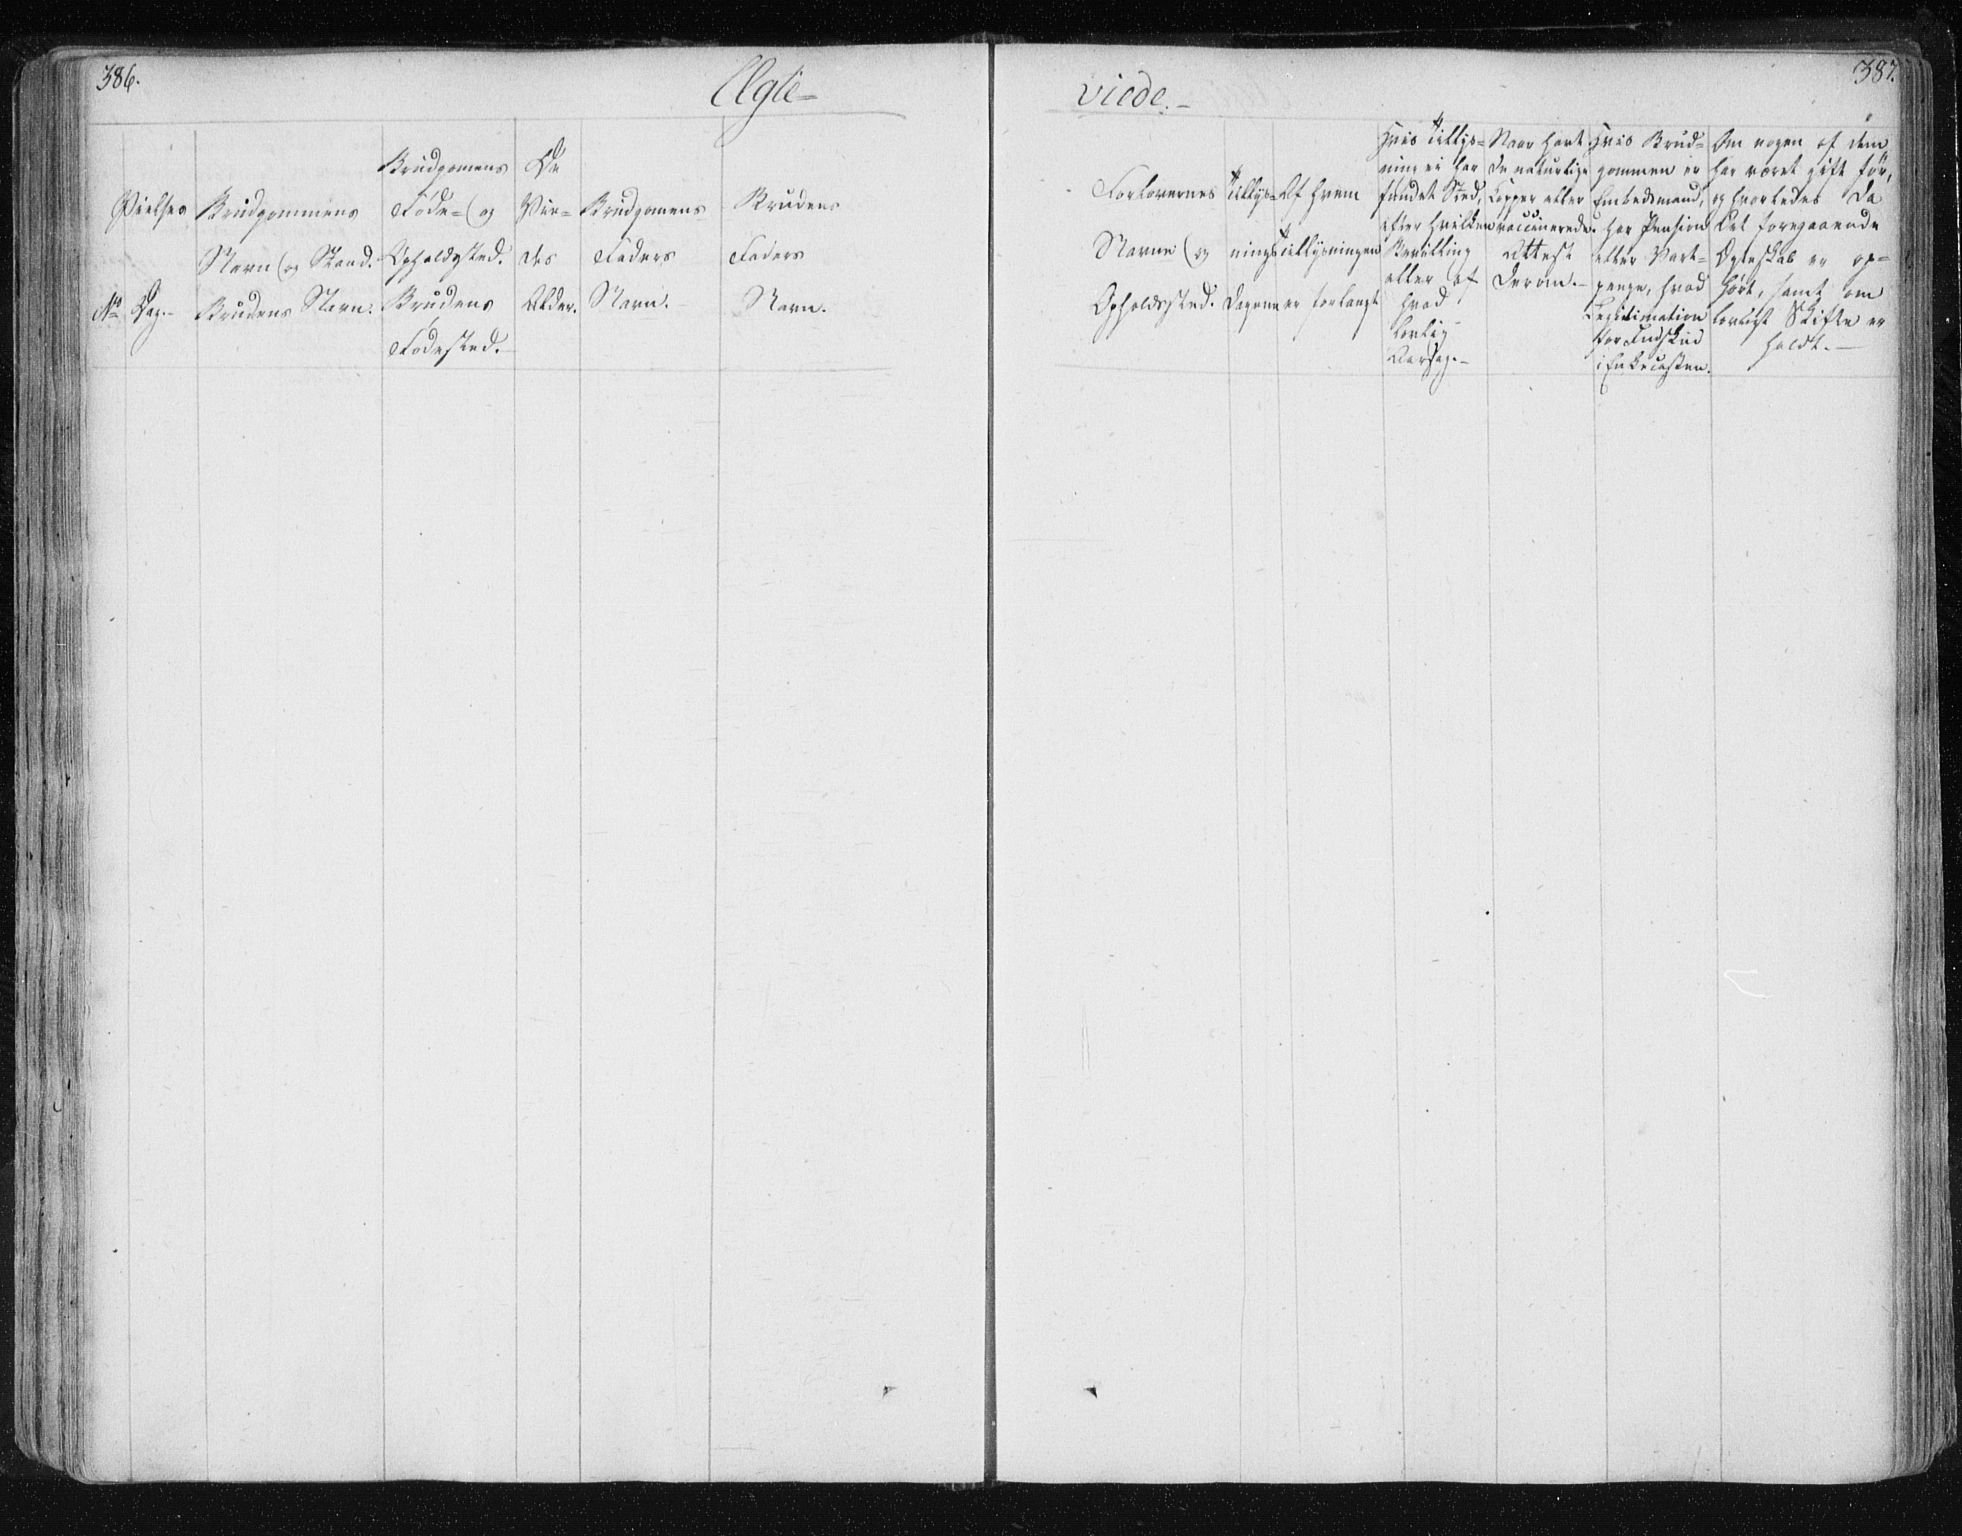 386.
Ægte-
viede.-
387.
Vielses
No Dag.-
Brudgommens
Navn (og Stand.
Brudens Navn.
Brudgomens
Føde- (og
Opholdsted.
Brudens
Fødested.-
De
Vie-
des
Alder.
Brudgomens
Faders
Navn.
Brudens
Faders
Navn.
Forlovernes
Navne (og
Opholdssted.
Tillys-
nings
Dagene
Af hvem
Tillysningen
er forlangt
Hvis Tillys-
ning ei har
fundet Sted,
efter hvilken
Bevilling
eller af
hvad
lovlig
Aarsag.-
Naar havt
de naturlige
Kopper eller
vaccinerede.
Attest
derom.-
Hvis Brud-
gommen er
Embedsmand,
har Pension
eller Vart-
penge, hvad
Legitimation
for Indskud
i Enkecassen.
Om nogen af dem
har været gift før,
og hvorledes da
det foregaaende
Ægteskab er op-
hørt, samt om
lovligt Skifte er
holdt.-